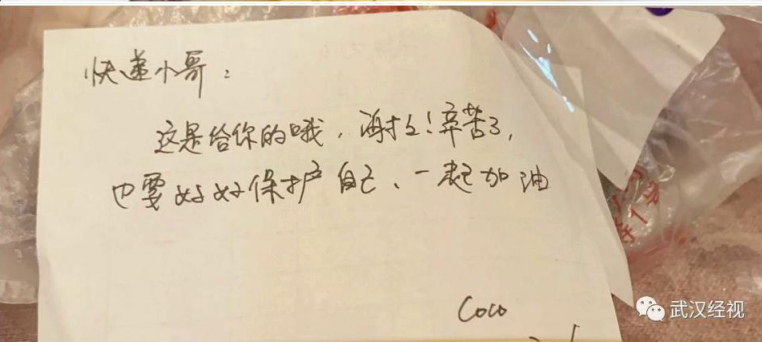 快递小哥：
这是给你的哦，谢谢！辛苦了，
也要好好保护自己、一起加油
Coco
武汉经视